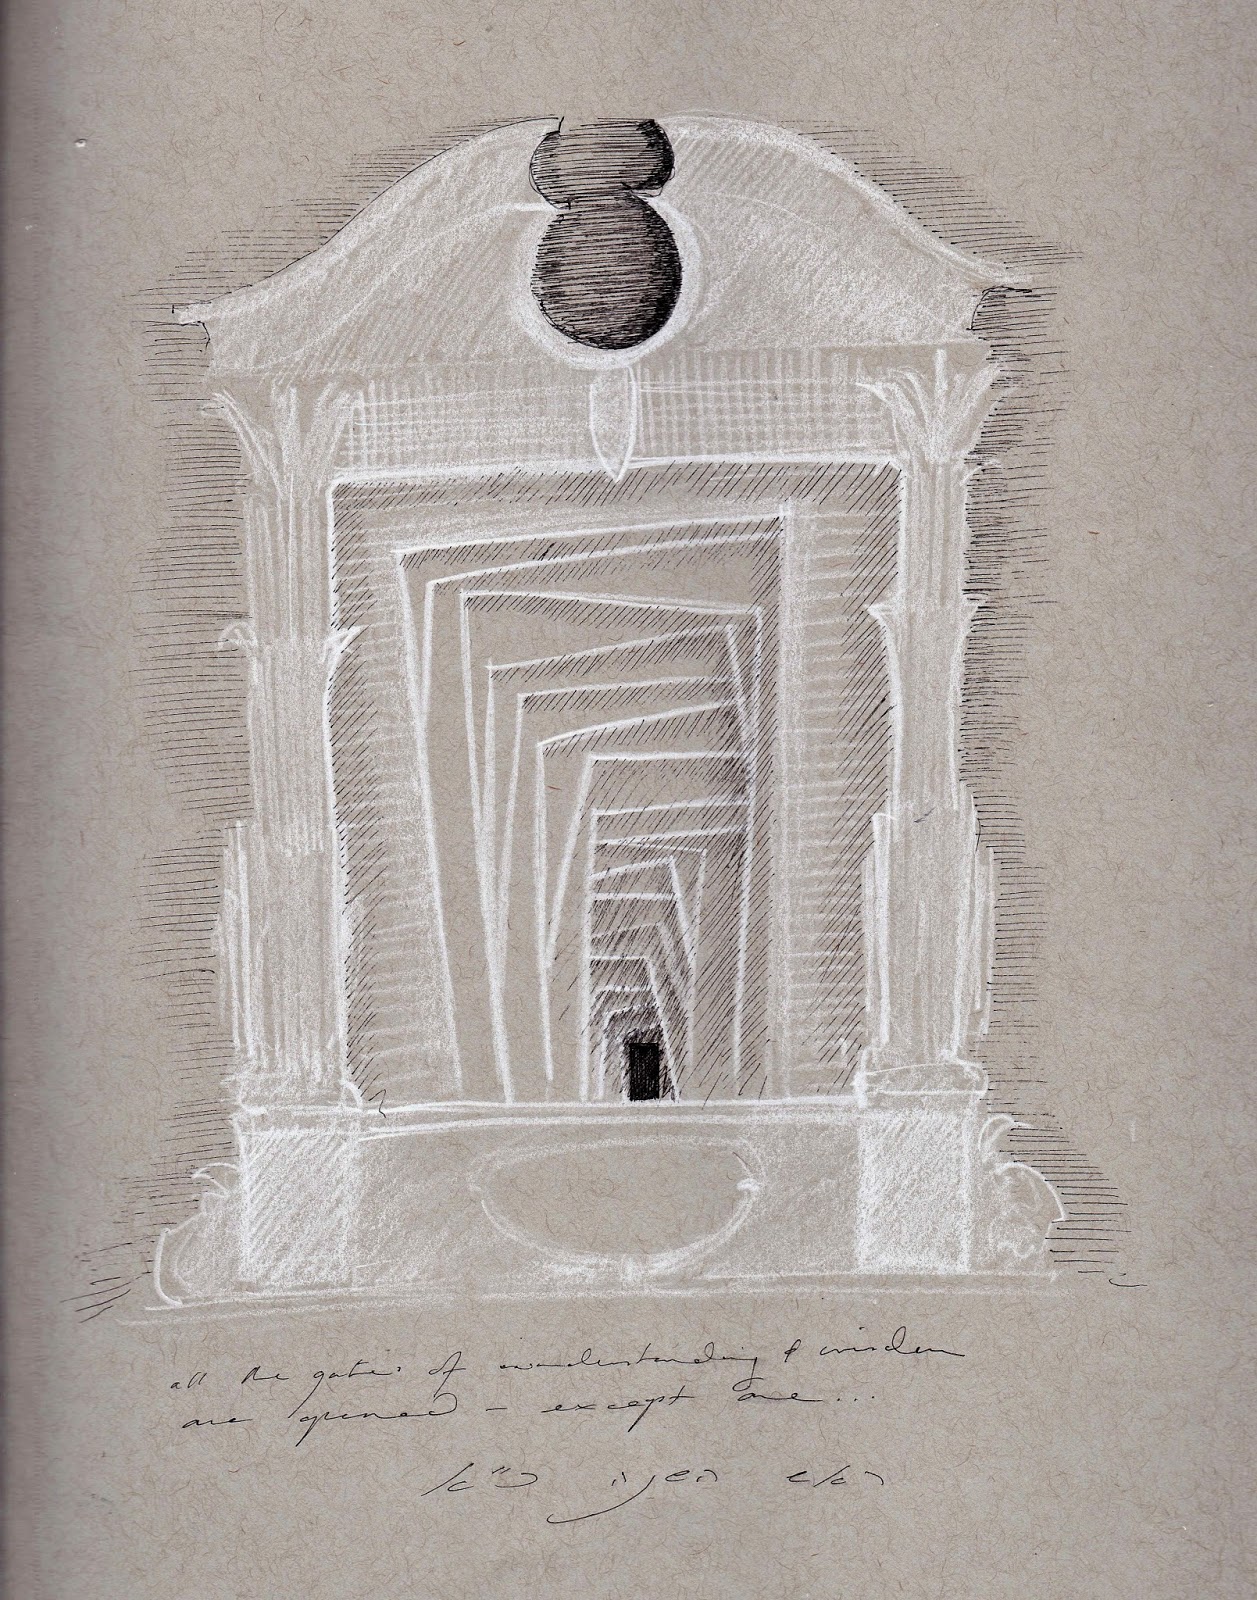 all the gates of understanding & wisdom
are opened – except one...
ראש השנה כ״א